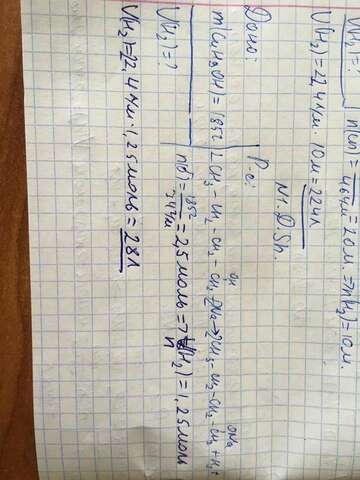 V(H₂)=?
n(сп)= /46г/м 20м.=>n(H₂)=10м.
V(H₂)=22,4л/м. 10м=224л
N1. D. Sh.
Дано:
m(C₄H₉OH)=185г
V(H₂)=?
Р-е:
2CH₃-CH₂-CH₂-CH₂OH 2Na→2CH₃-CH₂-CH₂-CH₂ONa+H₂↑
n(б)=185г/74г/м=2,5моль=>n(H₂)=1,25моль
V(H₂)=22,4л/м.1,25моль=28л